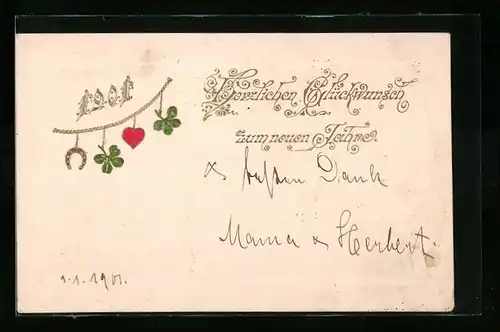 1901
Herzlichen Glückwunsch
zum neuen Jahre.
& besten Dank
Mama & Herbert.
1.1.1901.